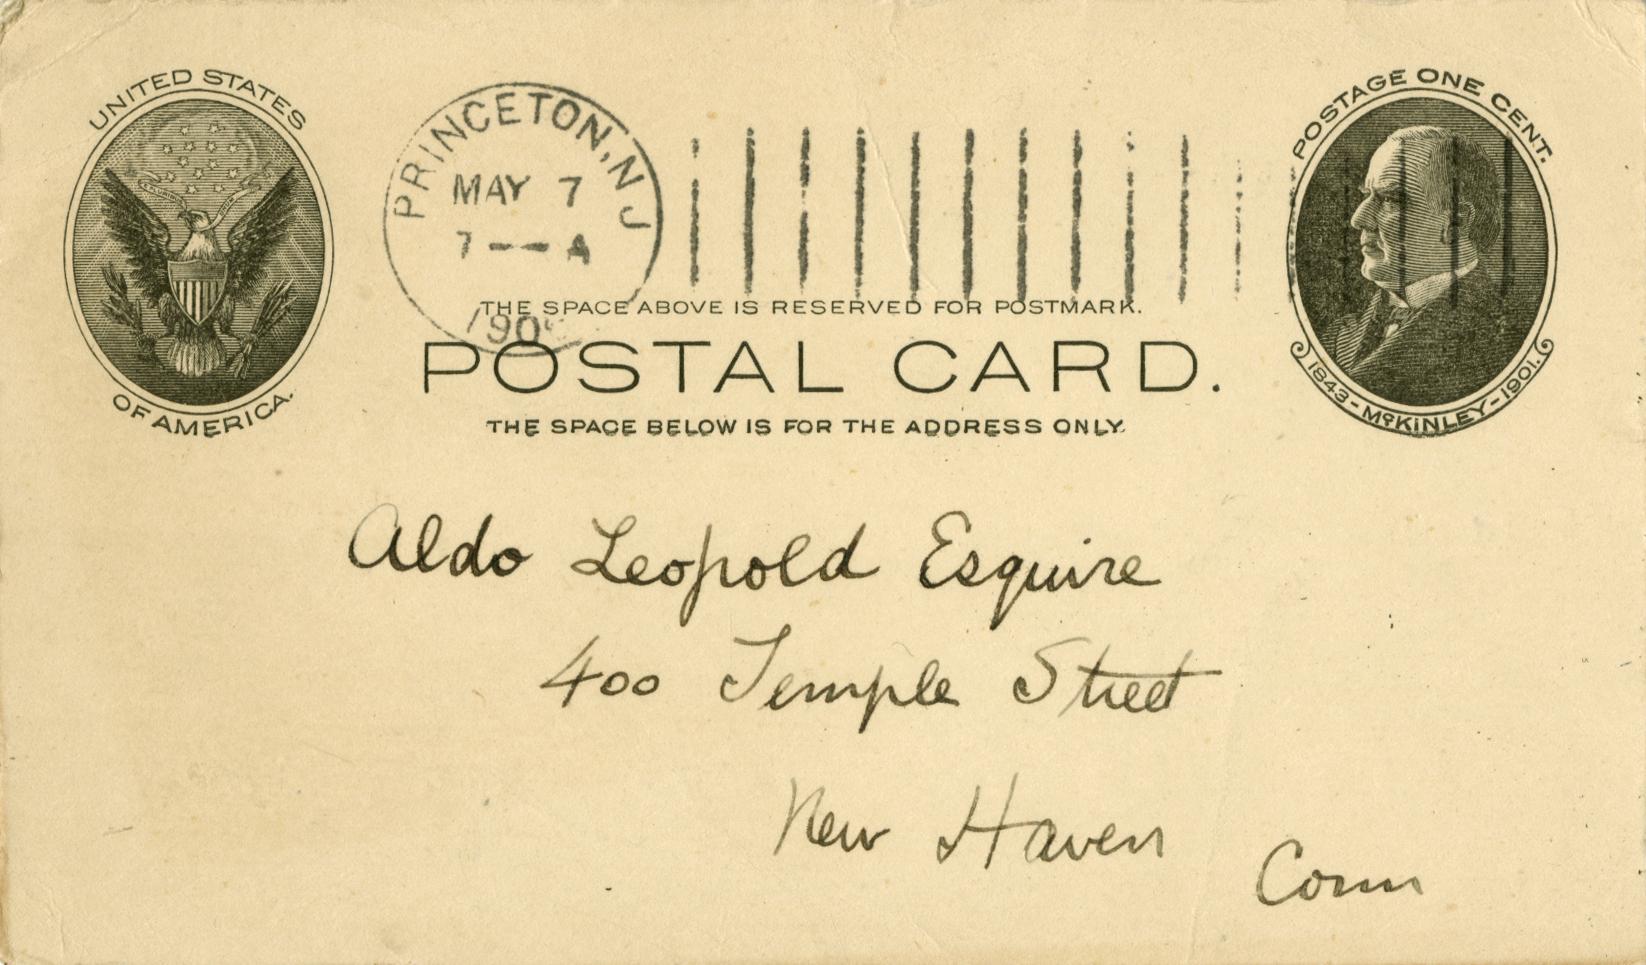 UNITED STATES
OF AMERICA.
PRINCETON, N J
MAY 7
7 — A
POSTAGE ONE CENT.
1843 - McKINLEY - 1901.
THE SPACE ABOVE IS RESERVED FOR POSTMARK.
POSTAL CARD.
THE SPACE BELOW IS FOR THE ADDRESS ONLY.
Aldo Leopold Esquire
400 Temple Street
New Haven
Conn